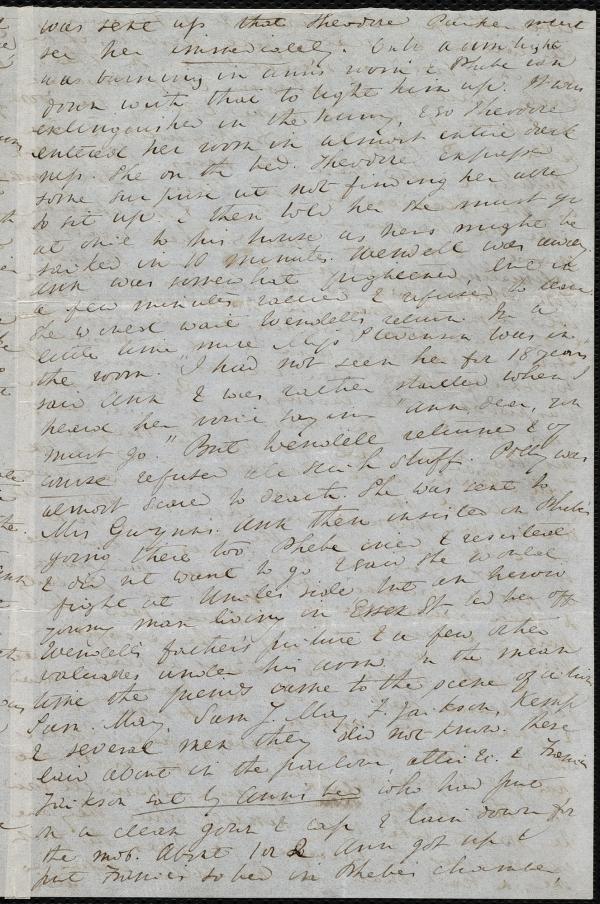 was sent up that Theodore Parker must
see her immediately. Only a dim light
was burning in Ann's room & Phebe ran
down with that to light him up. It was
extinguished in the hurry, & so Theodore
entered her room in almost entire dark
ness. She on the bed. Theodore expressed
some surprise at not finding her able
to sit up. & then told her she must go
at once to his house as hers might be
sacked in 10 minutes. Wendell was away.
Ann was somewhat frightened, but in
a few minutes rallied & refused to leave.
She would wait Wendell's return. In a
little time more Miss Stevenson was in
the room. "I had not seen her for 18 years
said Ann & was rather startled when I
heard her voice saying "Ann dear, you
must go." But Wendell returned & of
course refused all such stuff. Polly was
almost scared to death. She was sent to
Mrs Gwynns. Ann then insisted on Phebe's
going there too Phebe cried & resisted
& did not want to go & said she would
fight at Uncle's side but an heroic
young man living in Essex St. led her off
Wendell's father's picture & a few other
valuables under his arm. In the mean
time the friends came to the scene of action
Sam. May, Sam J. May, F. Jackson, Kemp
& several men they did not know. These
laid about in the parlour, attic &c. & Francis
Jackson sat by Ann's bed who had put
on a clean gown & cap & laid down for
the mob. About 1 or 2 Ann got up &
put Francis to bed in Phebe's chamber,